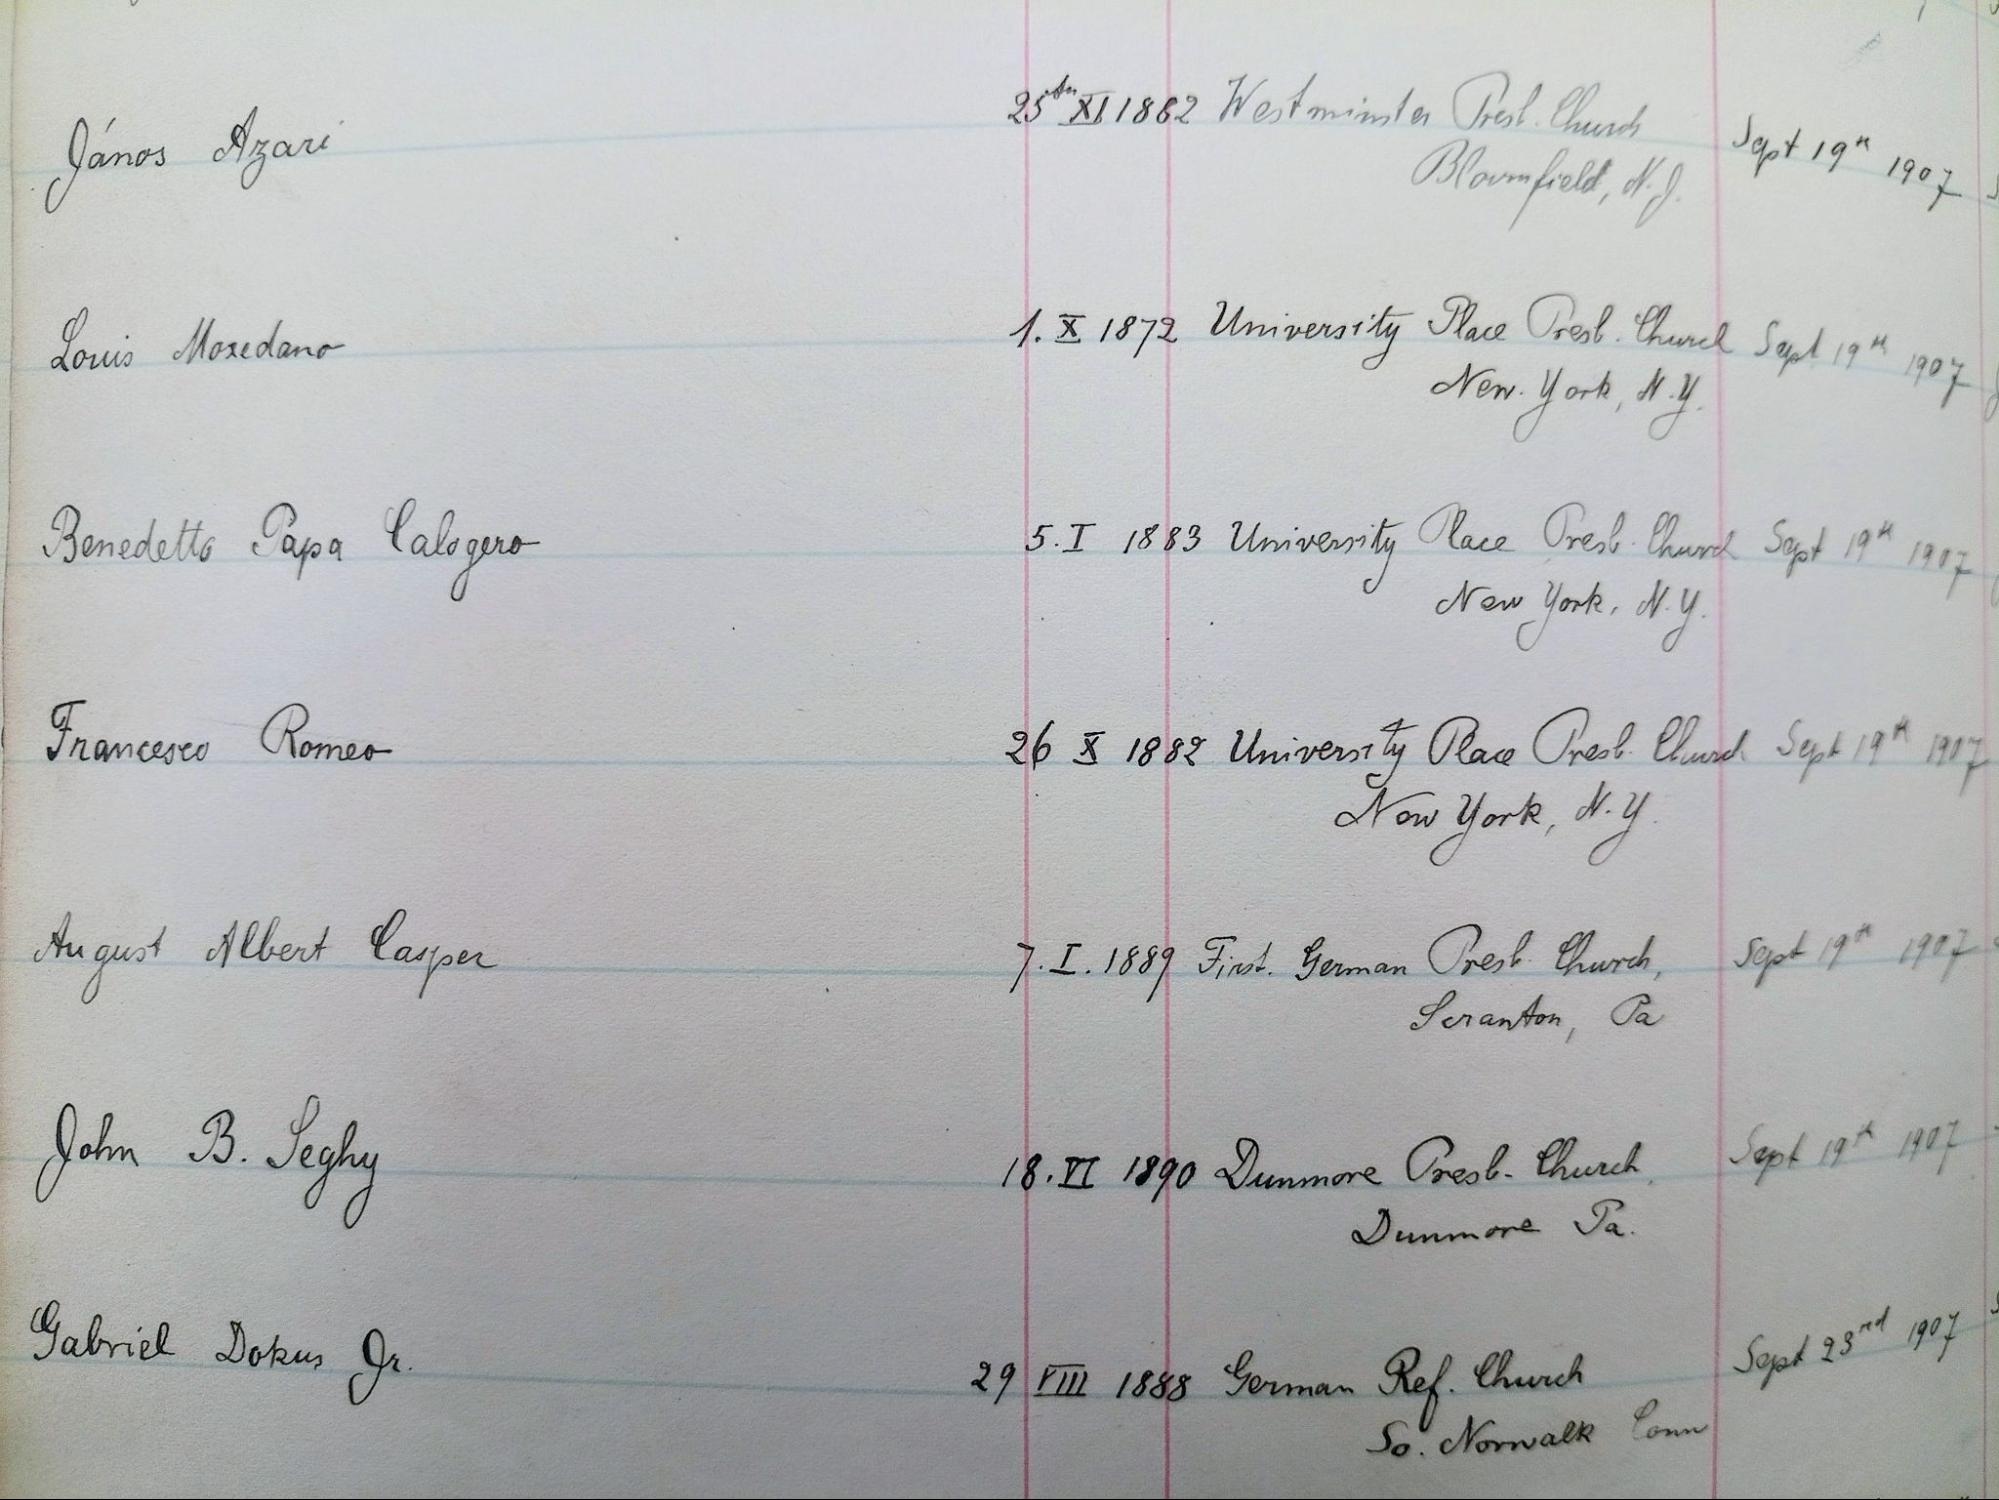 János Azari 25th XI 1882 Westminster Presb. Church Sept 19th 1907
Bloomfield, N.J.
Louis Moxedano 1. X 1872 University Place Presb. Church Sept 19th 1907
New York, N.Y.
Benedetto Papa Calogero 5. I 1883 University Place Presb. Church Sept 19th 1907
New York, N.Y.
Francesco Romeo 26 X 1882 University Place Presb. Church Sept 19th 1907
New York, N.Y.
August Albert Casper 7. I. 1889 First. German Presb. Church, Sept 19th 1907
Scranton, Pa
John B. Seghy 18. VI 1890 Dunmore Presb. Church, Sept 19th 1907
Dunmore Pa.
Gabriel Dokus Jr. 29 VIII 1888 German Ref. Church Sept 23rd 1907
So. Norwalk Conn